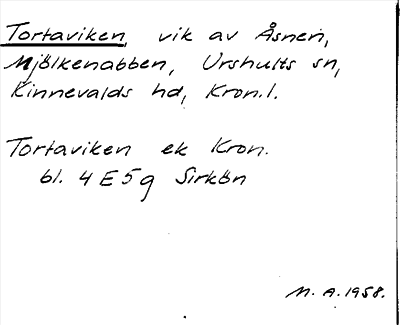 Tortaviken, vik av Åsnen,
Mjölkenabben, Urshults sn,
Kinnevalds hd, Kron.l.
Tortaviken ek Kron.
bl. 4 E 5 g Sirkön
M. A. 1958.